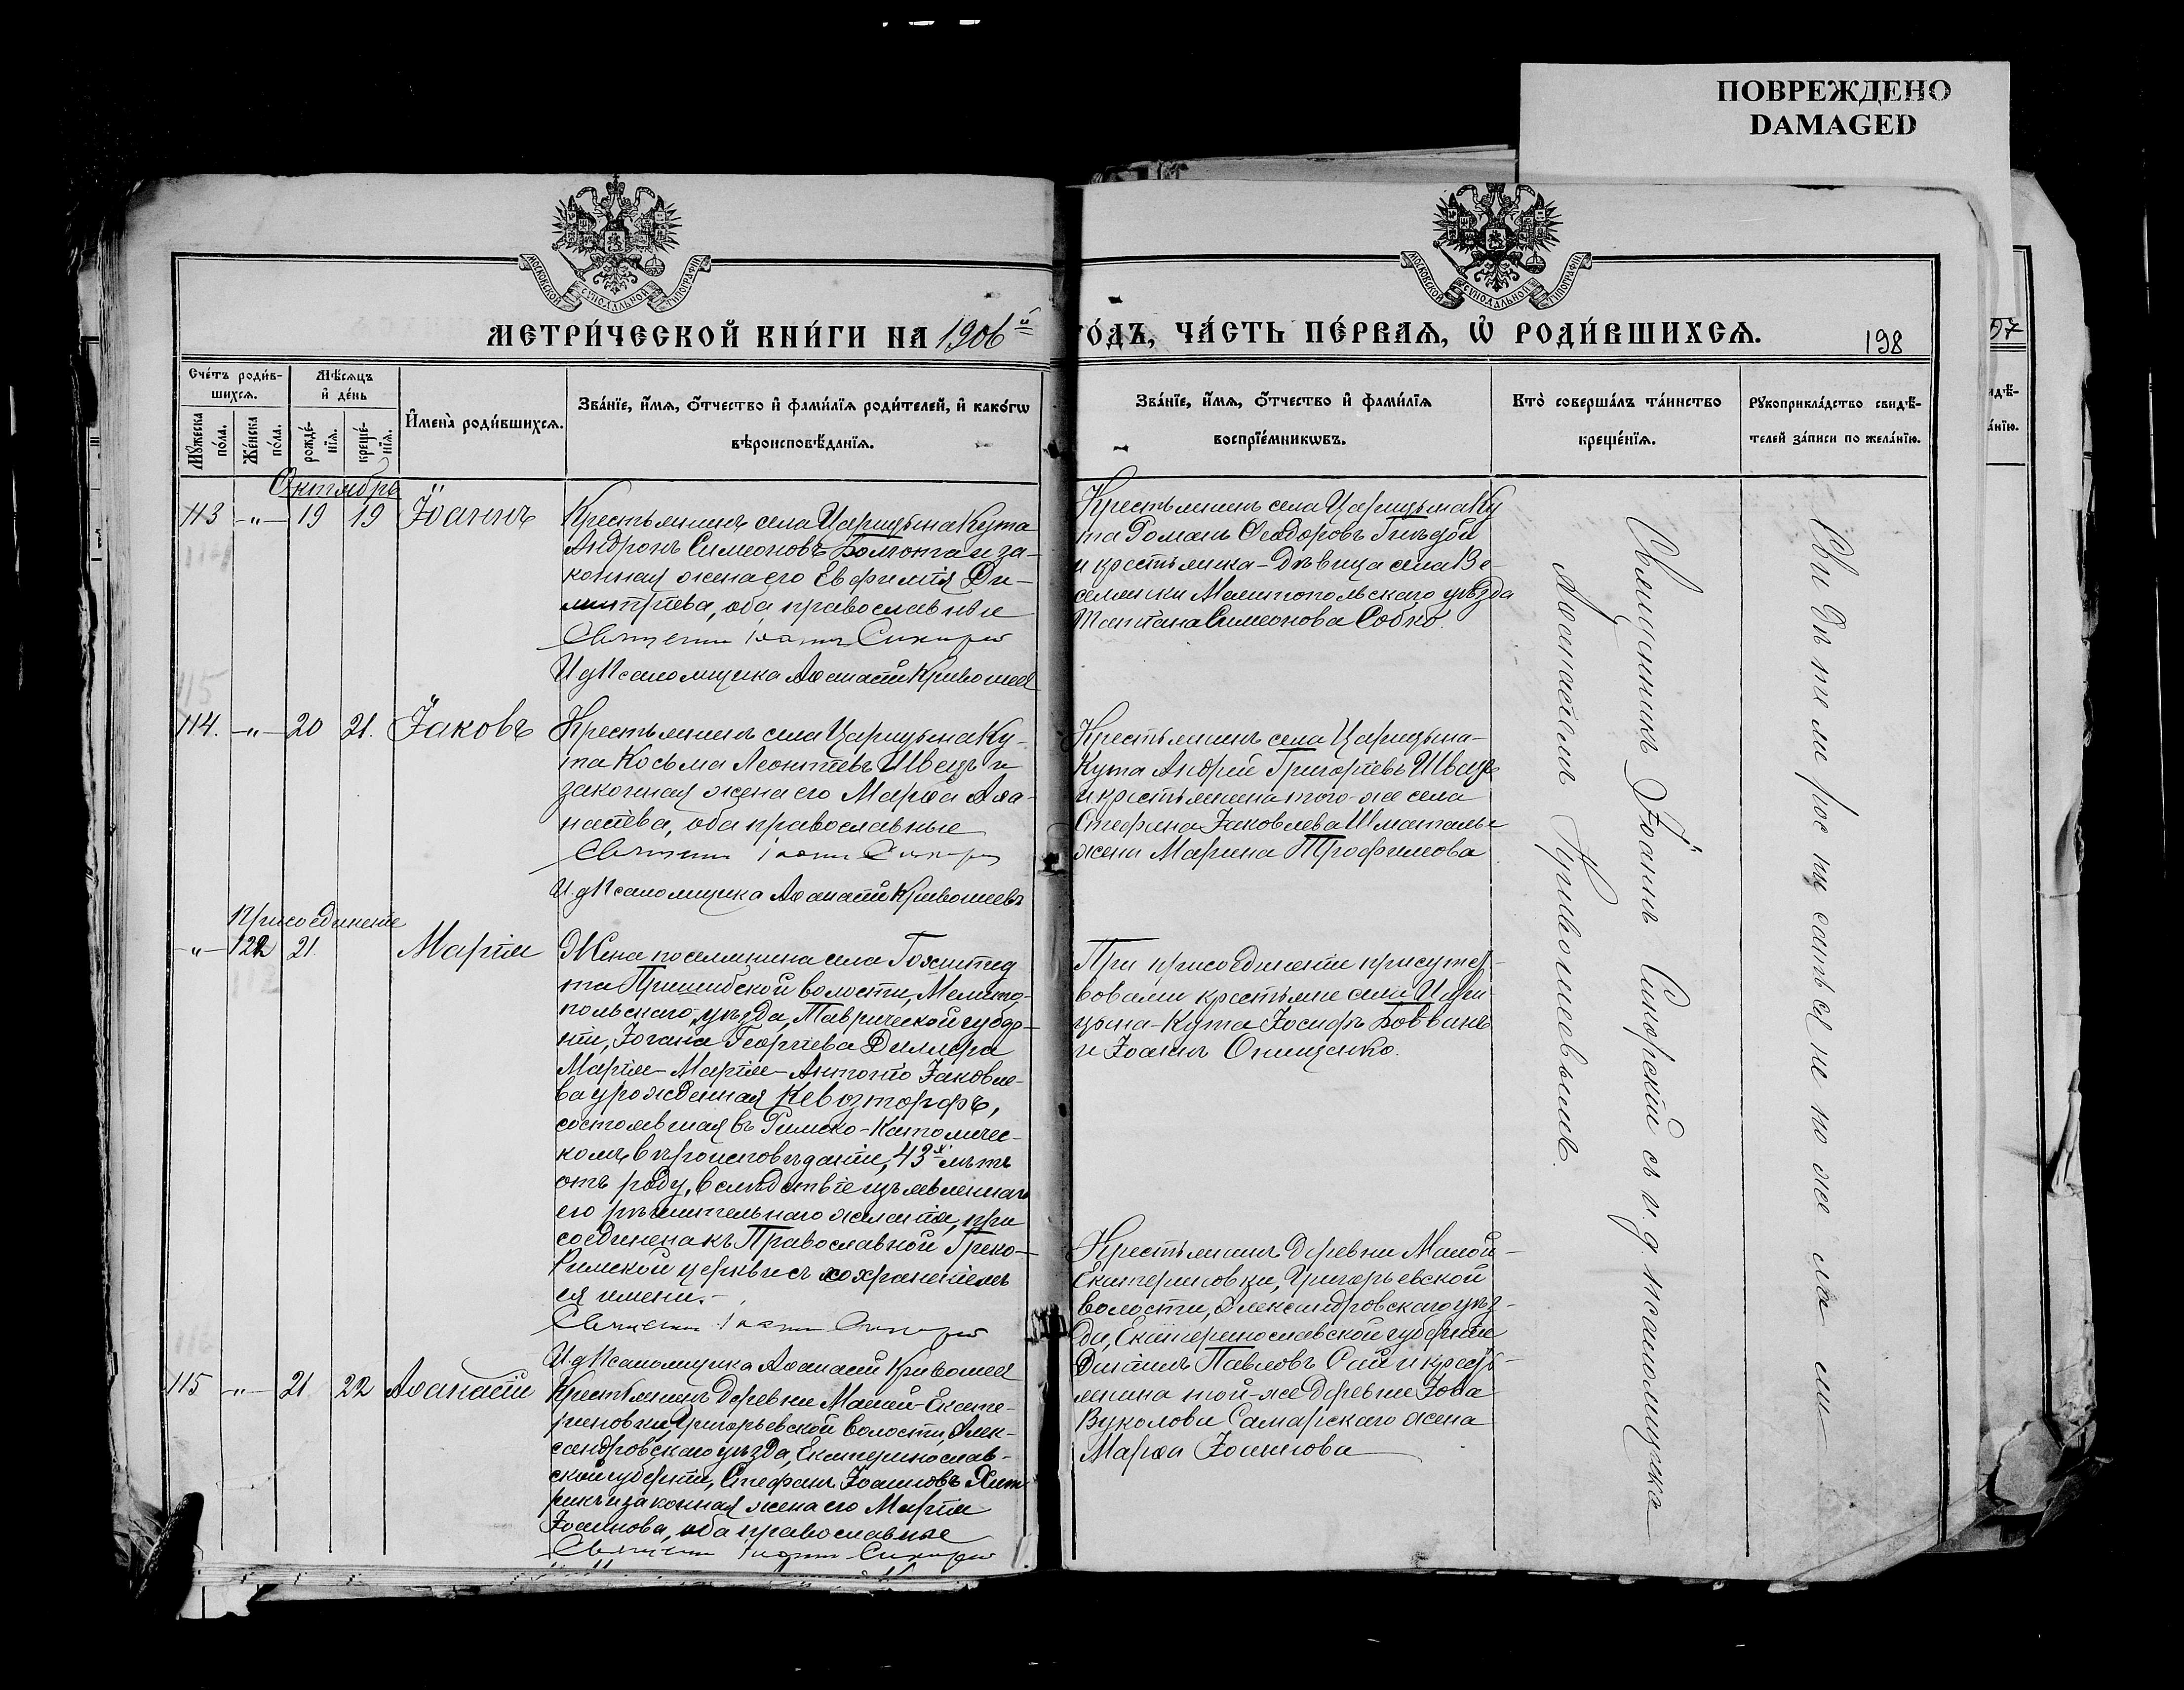 ПОВРЕЖДЕНО
DAMAGED
МОСКОВСКОЙ СѴНОДАЛЬНОЙ ТИПОГРАФІИ
МОСКОВСКОЙ СѴНОДАЛЬНОЙ ТИПОГРАФІИ
МЕТРИ́ЧЕСКОЙ КНИ́ГИ НА 1906й
О́ДЪ, ЧА́СТЬ ПЕ́РВАѦ, Ѽ РОДИ́ВШИХСѦ.
198
97
Сче́тъ роди́в-
шихсѧ.
Мѣ́сѧцъ
и҆ де́нь
Мꙋ́жеска по́ла.
Же́нска по́ла.
рожде́-
нїѧ.
креще́-
нїѧ.
И҆мена̀ роди́вшихсѧ.
Зва́нїе, и҆́мѧ, ѻ҆́тчество и҆ фами́лїѧ роди́телей, и҆ како́гѡ
вѣроисповѣ́данїѧ.
Зва́нїе, и҆́мѧ, ѻ҆́тчество и҆ фами́лїѧ
воспрїе́мникѡвъ.
Кто̀ соверша́лъ та́инство
креще́нїѧ.
Рꙋкоприкла́дство свидѣ́-
телей за́писи по жела́нїю.
Октябрь
113 -"- 19 19 Іоаннъ
Крестьянинъ села Царицына Кута
Андронъ Симеоновъ Болюта и за-
конная жена его Евфимія Ди-
митріева, оба православные
Священн Іоаннъ Сикорскій
И д Псаломщика Аѳанасій Кривошея
Крестьянинъ села Царицына Ку
та Романъ Ѳеодоровъ Гнѣдой
и крестьянка-дѣвица села Ве-
селянки Мелитопольскаго уѣзда
Татіана Симеонова Собко.
114. -"- 20 21. Іаковъ
Крестьянинъ села Царицына Ку-
та Косьма Леонтіевъ Швецъ и
законная жена его Марѳа Аѳа-
насіева, оба православные
Священн Іоаннъ Сикорскій
И. д Псаломщика Аѳанасій Кривошеевъ
Крестьянинъ села Царицына-
Кута Андрей Григоріевъ Швецъ
и крестьянина того-же села
Стефана Іаковлева Шматалы
жена Марина Трофимова
Присоединеніе
-"- 122 21. Марія
Жена поселянина села
та Пришибской волости, Мелито-
польскаго уѣзда, Таврической губер-
ніи, Іогана Георгіева Диллера
Марія-Марія-Антонію Іаковле-
ва урожденная
состоявшая въ Римско-Католичес-
комъ вѣроисповѣданіи, 43х лѣтъ
отъ роду, вслѣдствіе изъявленнаго
ею рѣшительнаго желанія, при
соединена къ Православной Греко-
Римской церкви съ сохраненіемъ
ея имени.-
Священн Іоаннъ Сикорскій
И. д Псаломщика Аѳанасій Кривошея
При присоединеніи присутст-
вовали крестьяне села Цари-
цына-Кута Іосифъ Бовванъ
и Іоаннъ Онищенко.
115 -"- 21 22 Аѳанасій
Крестьянинъ деревни Малой-Екате-
риновки, Григорьевской волости, Алек-
сандровскаго уѣзда, Екатеринослав-
ской губерніи, Стефанъ Іоанновъ Хит-
рикъ и законная жена его Марія
Іоаннова, оба православные
Священн Іоаннъ Сикорскій
Крестьянинъ деревни Малой-
Екатериновки, Григорьевской
волости, Александровскаго уѣз-
да, Екатеринославской губерніи
Даніилъ Павловъ Сай и кресть-
янина той-же деревни Іова
Вуколова Самарскаго жена
Марѳа Іоаннова
Священникъ Іоаннъ Сикорскій съ и. д. псаломщика
Аѳанасіемъ Кривошеевымъ.
Свидѣтели росписаться не пожелали